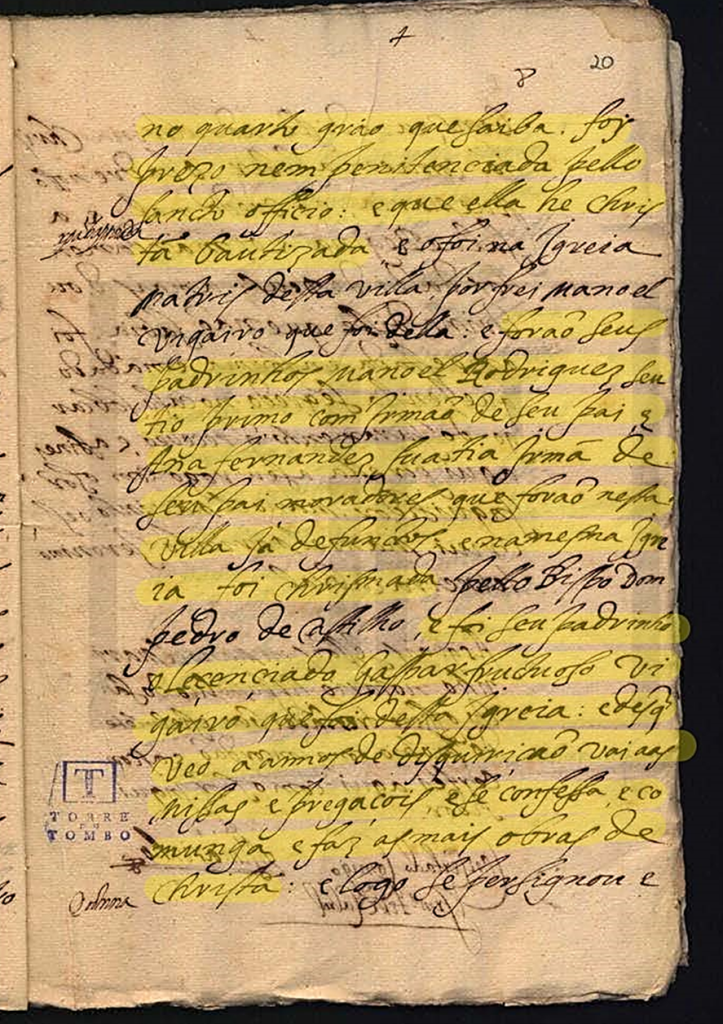 20
8
no quarto grao que saiba. foy
prezo nem penitenciada pello
sancto officio: e que ella he chris
tã bautizada, e o foi na Igreia
matris desta villa, por frei Manoel
vigairo que foi della: e foraõ seus
padrinhos Manoel Rodrigues seu
tio primo com Irmaõ de seu pai e
Ana fernandes sua tia Irmã de
seu pai moradores que foraõ nesta
villa ja defunctos: e na mesma Igre
ia foi chrismada pello Bispo Dom
pedro de castilho, e foi seu padrinho
o Lecenciado Gaspar fructuoso vi
gairo que foi desta Igreia: e des q̃
veo a annos de discricaõ vai as
missas e pregacois, e se confessa, e co
munga e faz as mais obras de
christã: e logo se persignou e
T
TORRE
DO
TOMBO